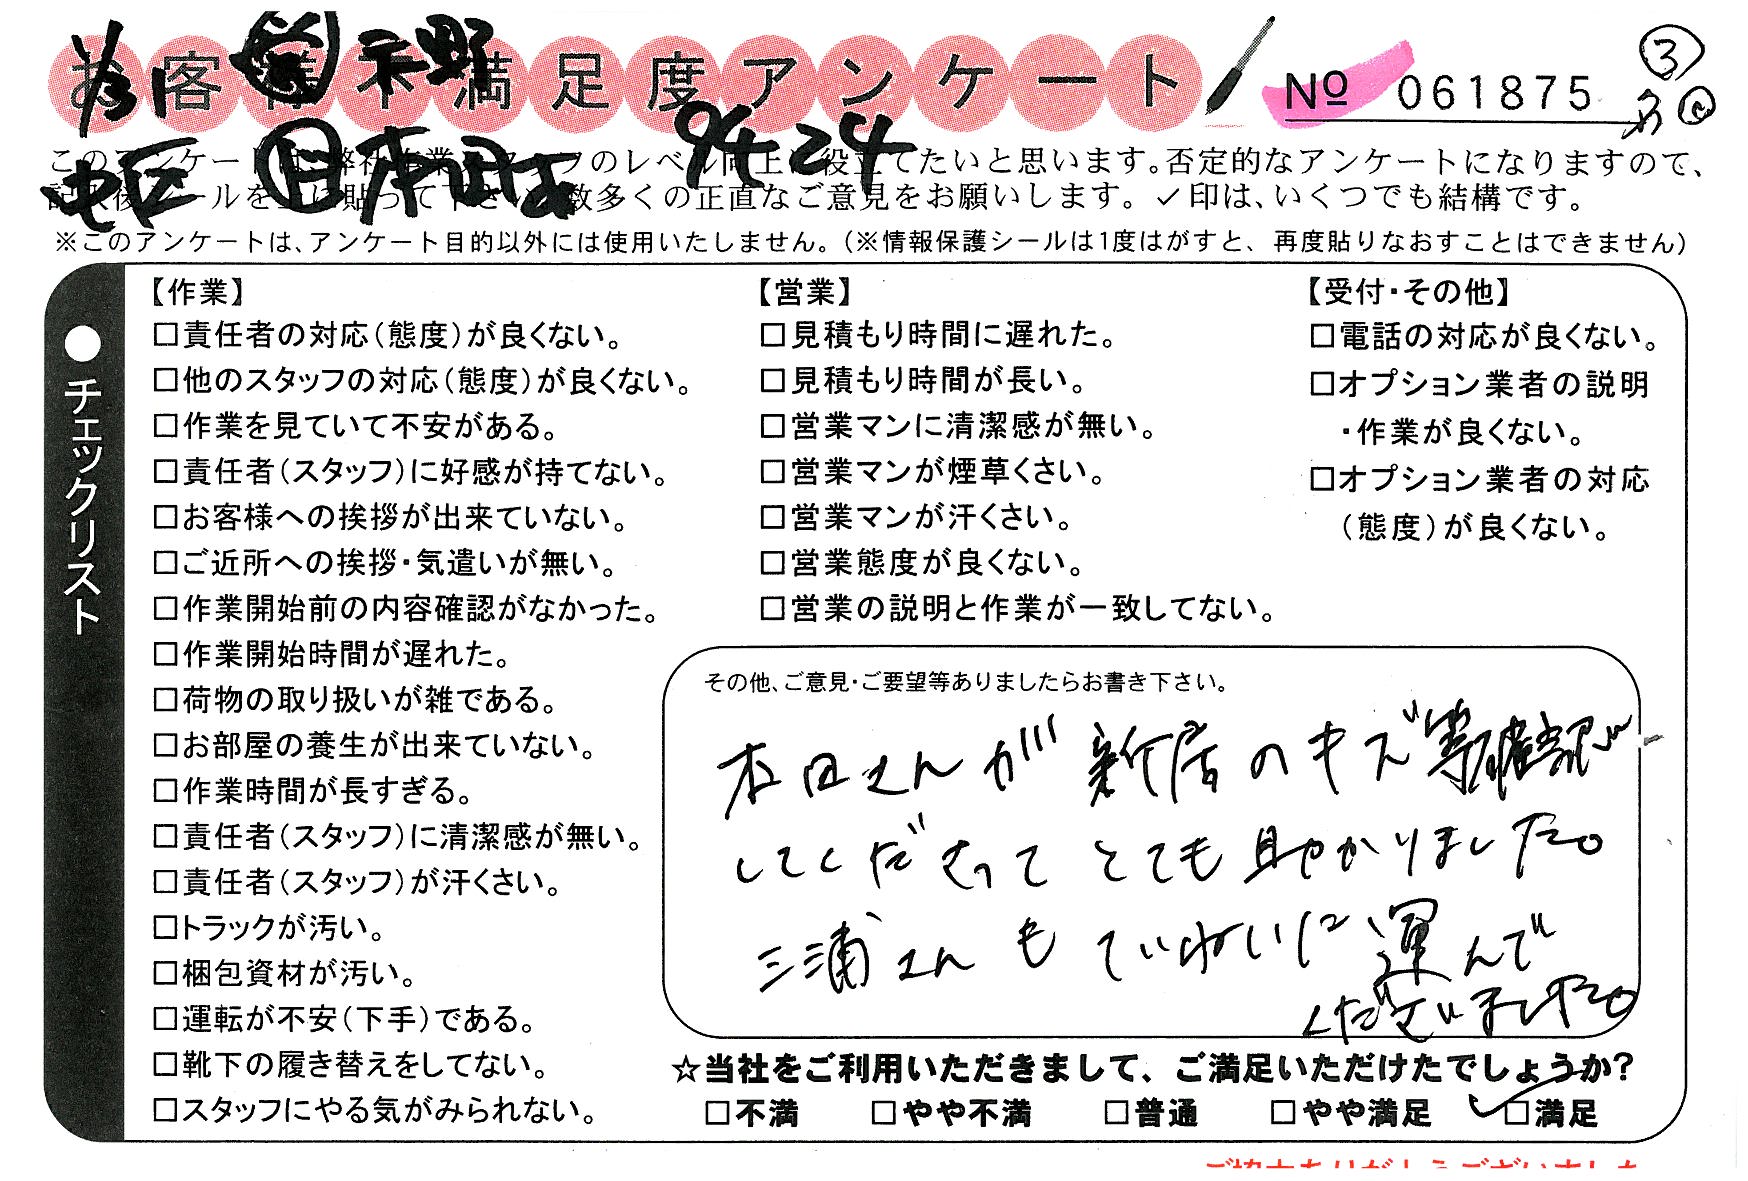 1/31
木野
お客様不満足度アンケート
No 061875
③
9424
このアンケートは、弊社作業スタッフのレベル向上に役立てたいと思います。否定的なアンケートになりますので、
記入後シールを上に貼って下さい。数多くの正直なご意見をお願いします。✓印は、いくつでも結構です。
※このアンケートは、アンケート目的以外には使用いたしません。(※情報保護シールは1度はがすと、再度貼りなおすことはできません)
●チェックリスト
【作業】
□責任者の対応(態度)が良くない。
□他のスタッフの対応(態度)が良くない。
□作業を見ていて不安がある。
□責任者(スタッフ)に好感が持てない。
□お客様への挨拶が出来ていない。
□ご近所への挨拶・気遣いが無い。
□作業開始前の内容確認がなかった。
□作業開始時間が遅れた。
□荷物の取り扱いが雑である。
□お部屋の養生が出来ていない。
□作業時間が長すぎる。
□責任者(スタッフ)に清潔感が無い。
□責任者(スタッフ)が汗くさい。
□トラックが汚い。
□梱包資材が汚い。
□運転が不安(下手)である。
□靴下の履き替えをしてない。
□スタッフにやる気がみられない。
【営業】
□見積もり時間に遅れた。
□見積もり時間が長い。
□営業マンに清潔感が無い。
□営業マンが煙草くさい。
□営業マンが汗くさい。
□営業態度が良くない。
□営業の説明と作業が一致してない。
【受付・その他】
□電話の対応が良くない。
□オプション業者の説明
・作業が良くない。
□オプション業者の対応
(態度)が良くない。
その他、ご意見・ご要望等ありましたらお書き下さい。
本田さんが新居のキズ等確認
してくださってとても助かりました。
三浦さんもていねいに運んで
くださいました。
☆当社をご利用いただきまして、ご満足いただけたでしょうか?
□不満 □やや不満 □普通 □やや満足 ✓□満足
ご協力ありがとうございました